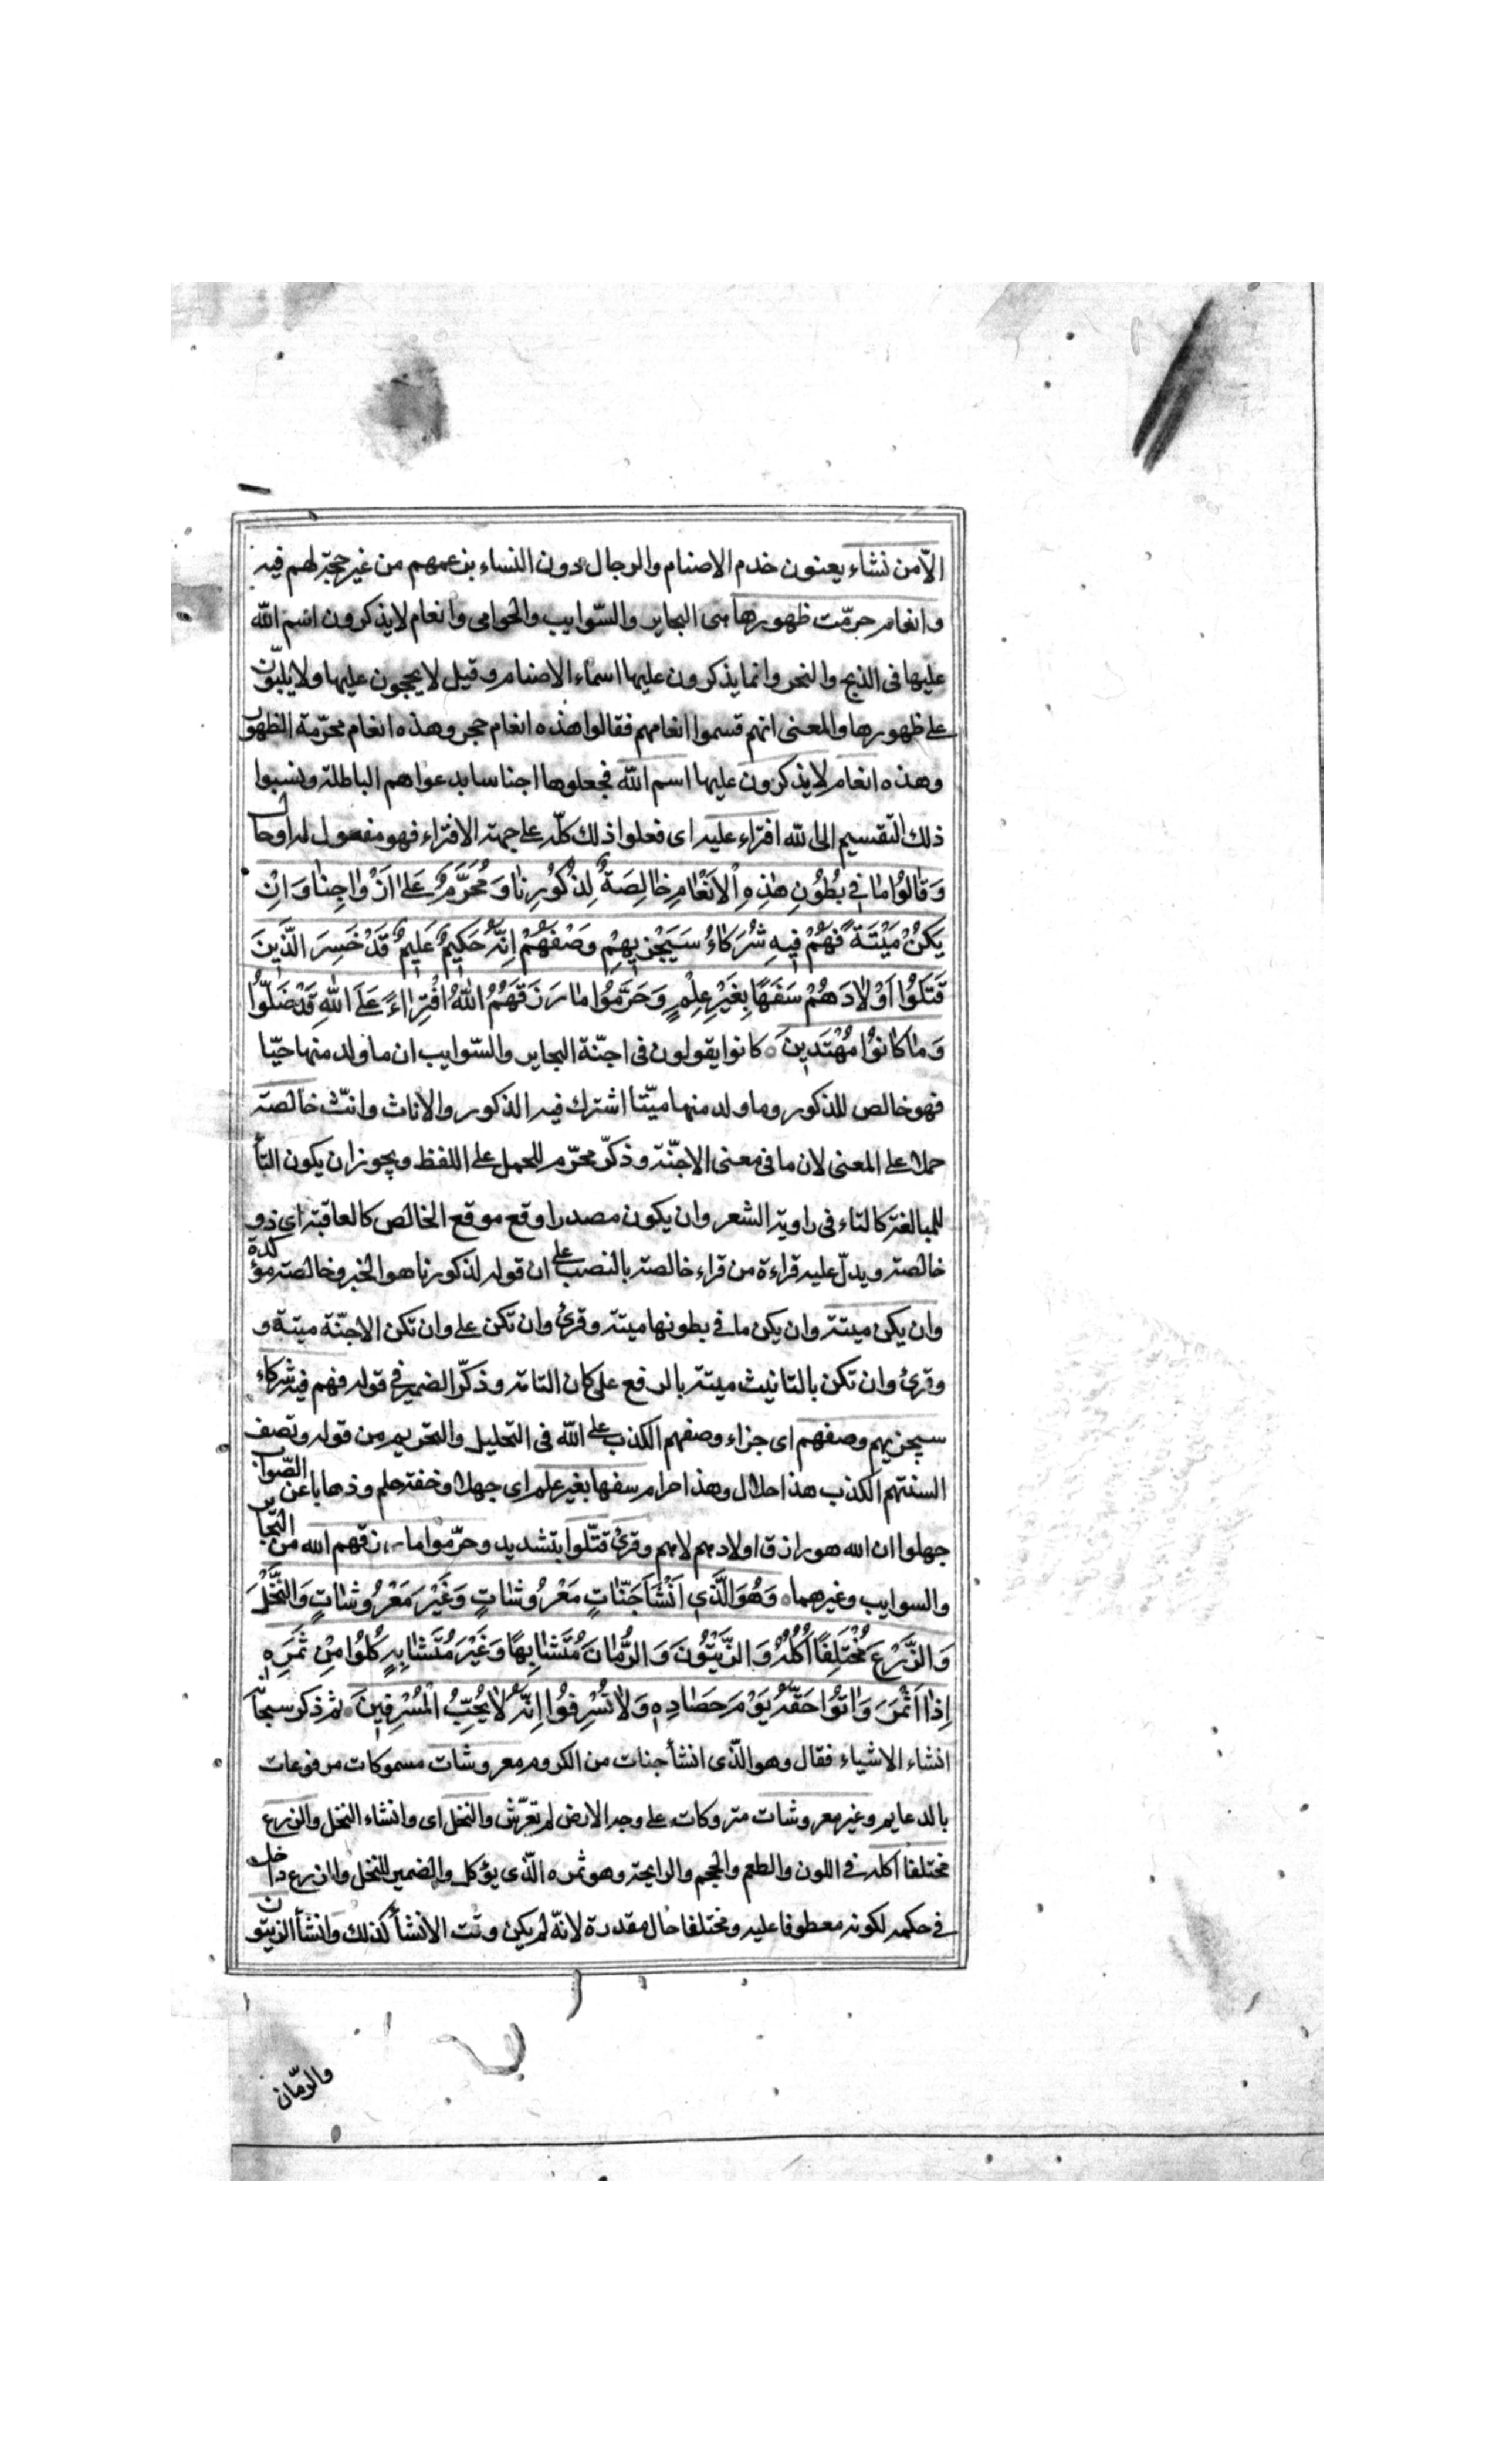 الّا من نشاء يعنون خدم الاصنام والرجال دون النساء بزعمهم من غير حجة لهم فيه
وانعام حرّمت ظهورها هى البحاير والسّوايب والحوامى وانعام لا يذكرون اسم الله
عليها فى الذبح والنحر وانما يذكرون عليها اسماء الاصنام وقيل لا يحجون عليها ولا يلبّون
على ظهورها والمعنى انهم قسموا انعامهم فقالوا هذه انعام حجر وهذه انعام محرّمة الظهور
وهذه انعام لا يذكرون عليها اسم الله فجعلوها اجناسا بدعواهم الباطلة ونسبوا
ذلك التقسيم الى الله افتراء عليه اى فعلوا ذلك كلّه على جهة الافتراء فهو مفعول له او حال
وَقَالُوا مَا فِي بُطُونِ هٰذِهِ الْاَنْعَامِ خَالِصَةٌ لِذُكُورِنَا وَمُحَرَّمٌ عَلٰى اَزْوَاجِنَا وَاِنْ
يَكُنْ مَيْتَةً فَهُمْ فِيهِ شُرَكَاءُ سَيَجْزِيهِمْ وَصْفَهُمْ اِنَّهُ حَكِيمٌ عَلِيمٌ قَدْ خَسِرَ الَّذِينَ
قَتَلُوا اَوْلَادَهُمْ سَفَهًا بِغَيْرِ عِلْمٍ وَحَرَّمُوا مَا رَزَقَهُمُ اللهُ افْتِرَاءً عَلَى اللهِ قَدْ ضَلُّوا
وَمَا كَانُوا مُهْتَدِينَ ۝ كانوا يقولون فى اجنّة البحاير والسّوايب ان ما ولد منها حيّا
فهو خالص للذكور وما ولد منها ميّتا اشترك فيه الذكور والاناث وانّث خالصة
حملا على المعنى لان ما فى معنى الاجنّة وذكّر محرّم للحمل على اللفظ ويجوز ان يكون التأ
للمبالغة كالتاء فى راوية الشعر وان يكون مصدرا وقع موقع الخالص كالعاقبة اى ذو
خالصة ويدلّ عليه قراءة من قراء خالصة بالنصب على ان قوله لذكورنا هو الخبر وخالصة مؤكدة
وان يكن ميتة وان يكن ما فى بطونها ميتة وقرئ وان تكن على وان تكن الاجنّة ميتة و
وقرئ وان تكن بالتانيث ميتة بالرفع على كان التامة وذكّر الضمير فى قوله فهم فيه شركاء
سيجزيهم وصفهم اى جزاء وصفهم الكذب على الله فى التحليل والتحريم من قوله وتصف
السنتهم الكذب هذا حلال وهذا حرام سفها بغير علم اى جهلا وخفة حلم وذهابا عن الصّواب
جهلوا ان الله هو رازق اولادهم لاهم وقرئ قتّلوا بتشديد وحرّموا ما رزقهم الله من البحا
والسوايب وغيرهما ۝ وَهُوَ الَّذِي اَنْشَاَ جَنَّاتٍ مَعْرُوشَاتٍ وَغَيْرَ مَعْرُوشَاتٍ وَالنَّخْلَ
وَالزَّرْعَ مُخْتَلِفًا اُكُلُهُ وَالزَّيْتُونَ وَالرُّمَّانَ مُتَشَابِهًا وَغَيْرَ مُتَشَابِهٍ كُلُوا مِنْ ثَمَرِهِ
اِذَا اَثْمَرَ وَاٰتُوا حَقَّهُ يَوْمَ حَصَادِهِ وَلَا تُسْرِفُوا اِنَّهُ لَا يُحِبُّ الْمُسْرِفِينَ ۝ ثم ذكر سبحانه
انشاء الاشياء فقال وهو الّذى انشأ جنات من الكروم معروشات مسموكات مرفوعات
بالدعايم وغير معروشات متروكات على وجه الارض لم تعرّش والنخل اى وانشاء النخل والزرع
مختلفا اكله فى اللون والطعم والحجم والرايحة وهو ثمره الّذى يؤكل والضمير للنخل والزرع داخل
فى حكمه لكونه معطوفا عليه ومختلفا حال مقدرة لانّه لم يكن وقت الانشأ كذلك وانشأ الزيتون
والرمّان